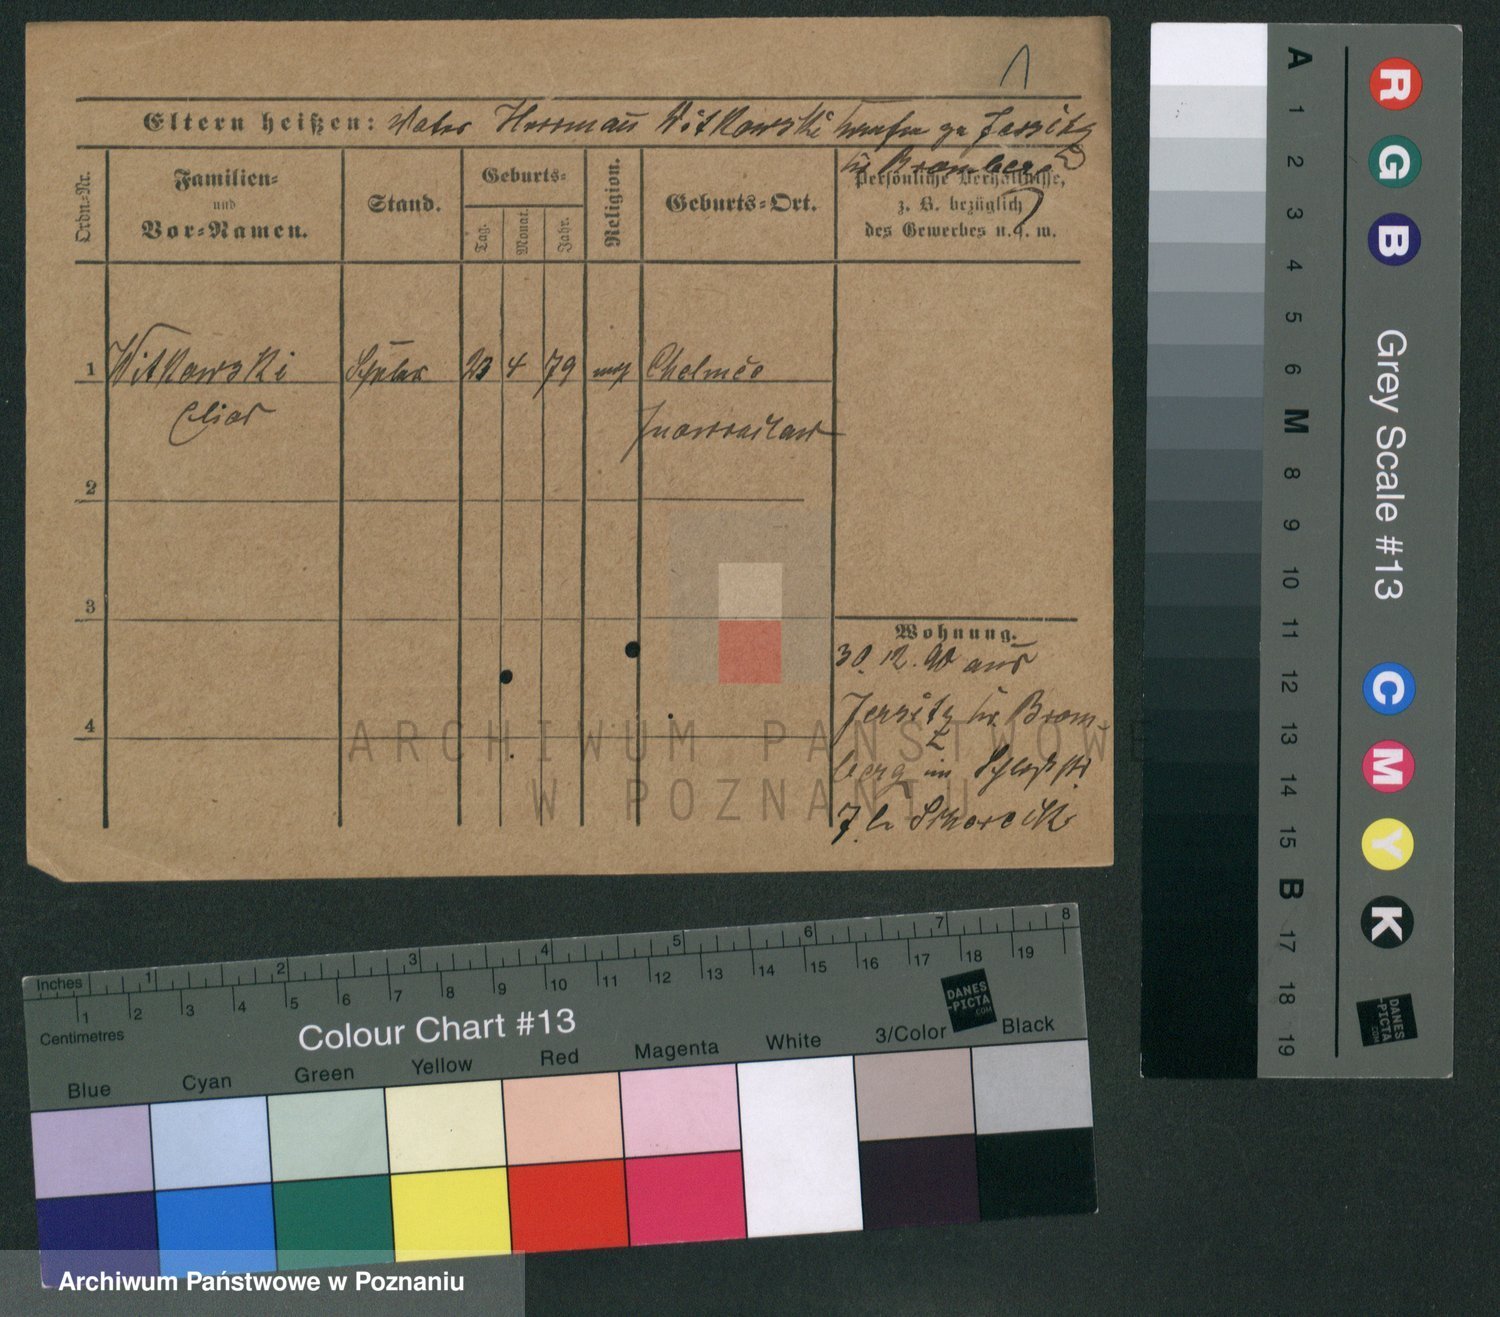 1
Eltern heißen: Vater Herrmann Witkowski zu Jersitz
Kr. Bromberg
Ordn=Nr.
Familien=
und
Vor=Namen.
Stand.
Geburts=
Tag.
Monat.
Jahr.
Religion.
Geburts=Ort.
Persönliche Verhältnisse,
z. B. bezüglich
des Gewerbes u.s. w.
1 Witkowski Schüler 23 4 79 mos Chelmce
Elias Inowrazlaw
2
3
4
Wohnung.
30. 12. 90 aus
Jersitz Kr. Brom-
berg im Schloßstr.
7 b.
ARCHIWUM PAŃSTWOWE
W POZNANIU
A 1 2 3 4 5 6 M 8 9 10 11 12 13 14 15 B 17 18 19
R G B Grey Scale #13 C M Y K
DANES
-PICTA
.COM
Inches 1 2 3 4 5 6 7 8
Centimetres 1 2 3 4 5 6 7 8 9 10 11 12 13 14 15 16 17 18 19
Colour Chart #13
DANES
-PICTA
.COM
Blue Cyan Green Yellow Red Magenta White 3/Color Black
Archiwum Państwowe w Poznaniu